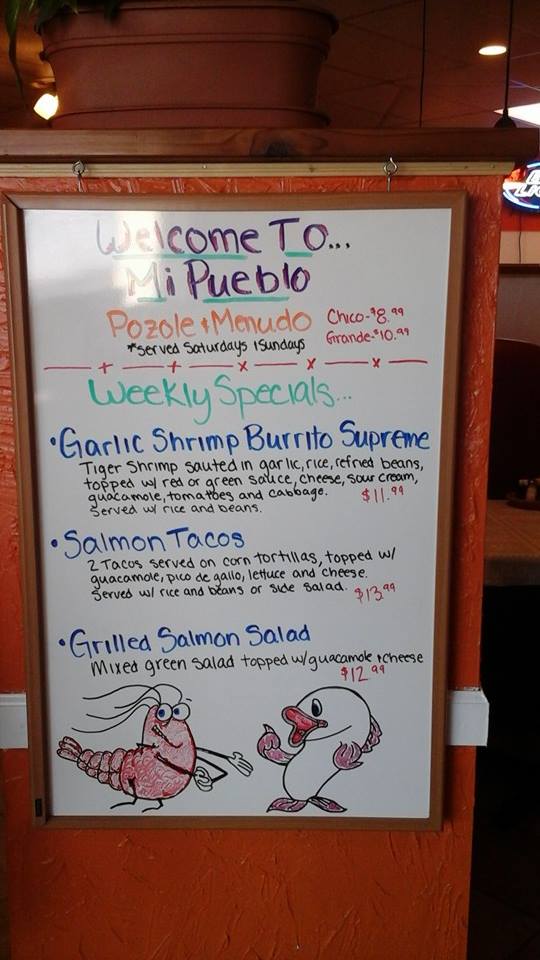 Welcome To...
Mi Pueblo
Pozole + Menudo Chico-$8.99
*Served Saturdays + Sundays Grande-$10.99
Weekly Specials...
• Garlic Shrimp Burrito Supreme
Tiger Shrimp sauted in garlic, rice, refried beans,
topped w/ red or green sauce, cheese, sour cream,
guacamole, tomatoes and cabbage. $11.99
Served w/ rice and beans.
• Salmon Tacos
2 Tacos served on corn tortillas, topped w/
guacamole, pico de gallo, lettuce and cheese.
Served w/ rice and beans or side salad. $13.99
• Grilled Salmon Salad
Mixed green salad topped w/guacamole + cheese
$12.99